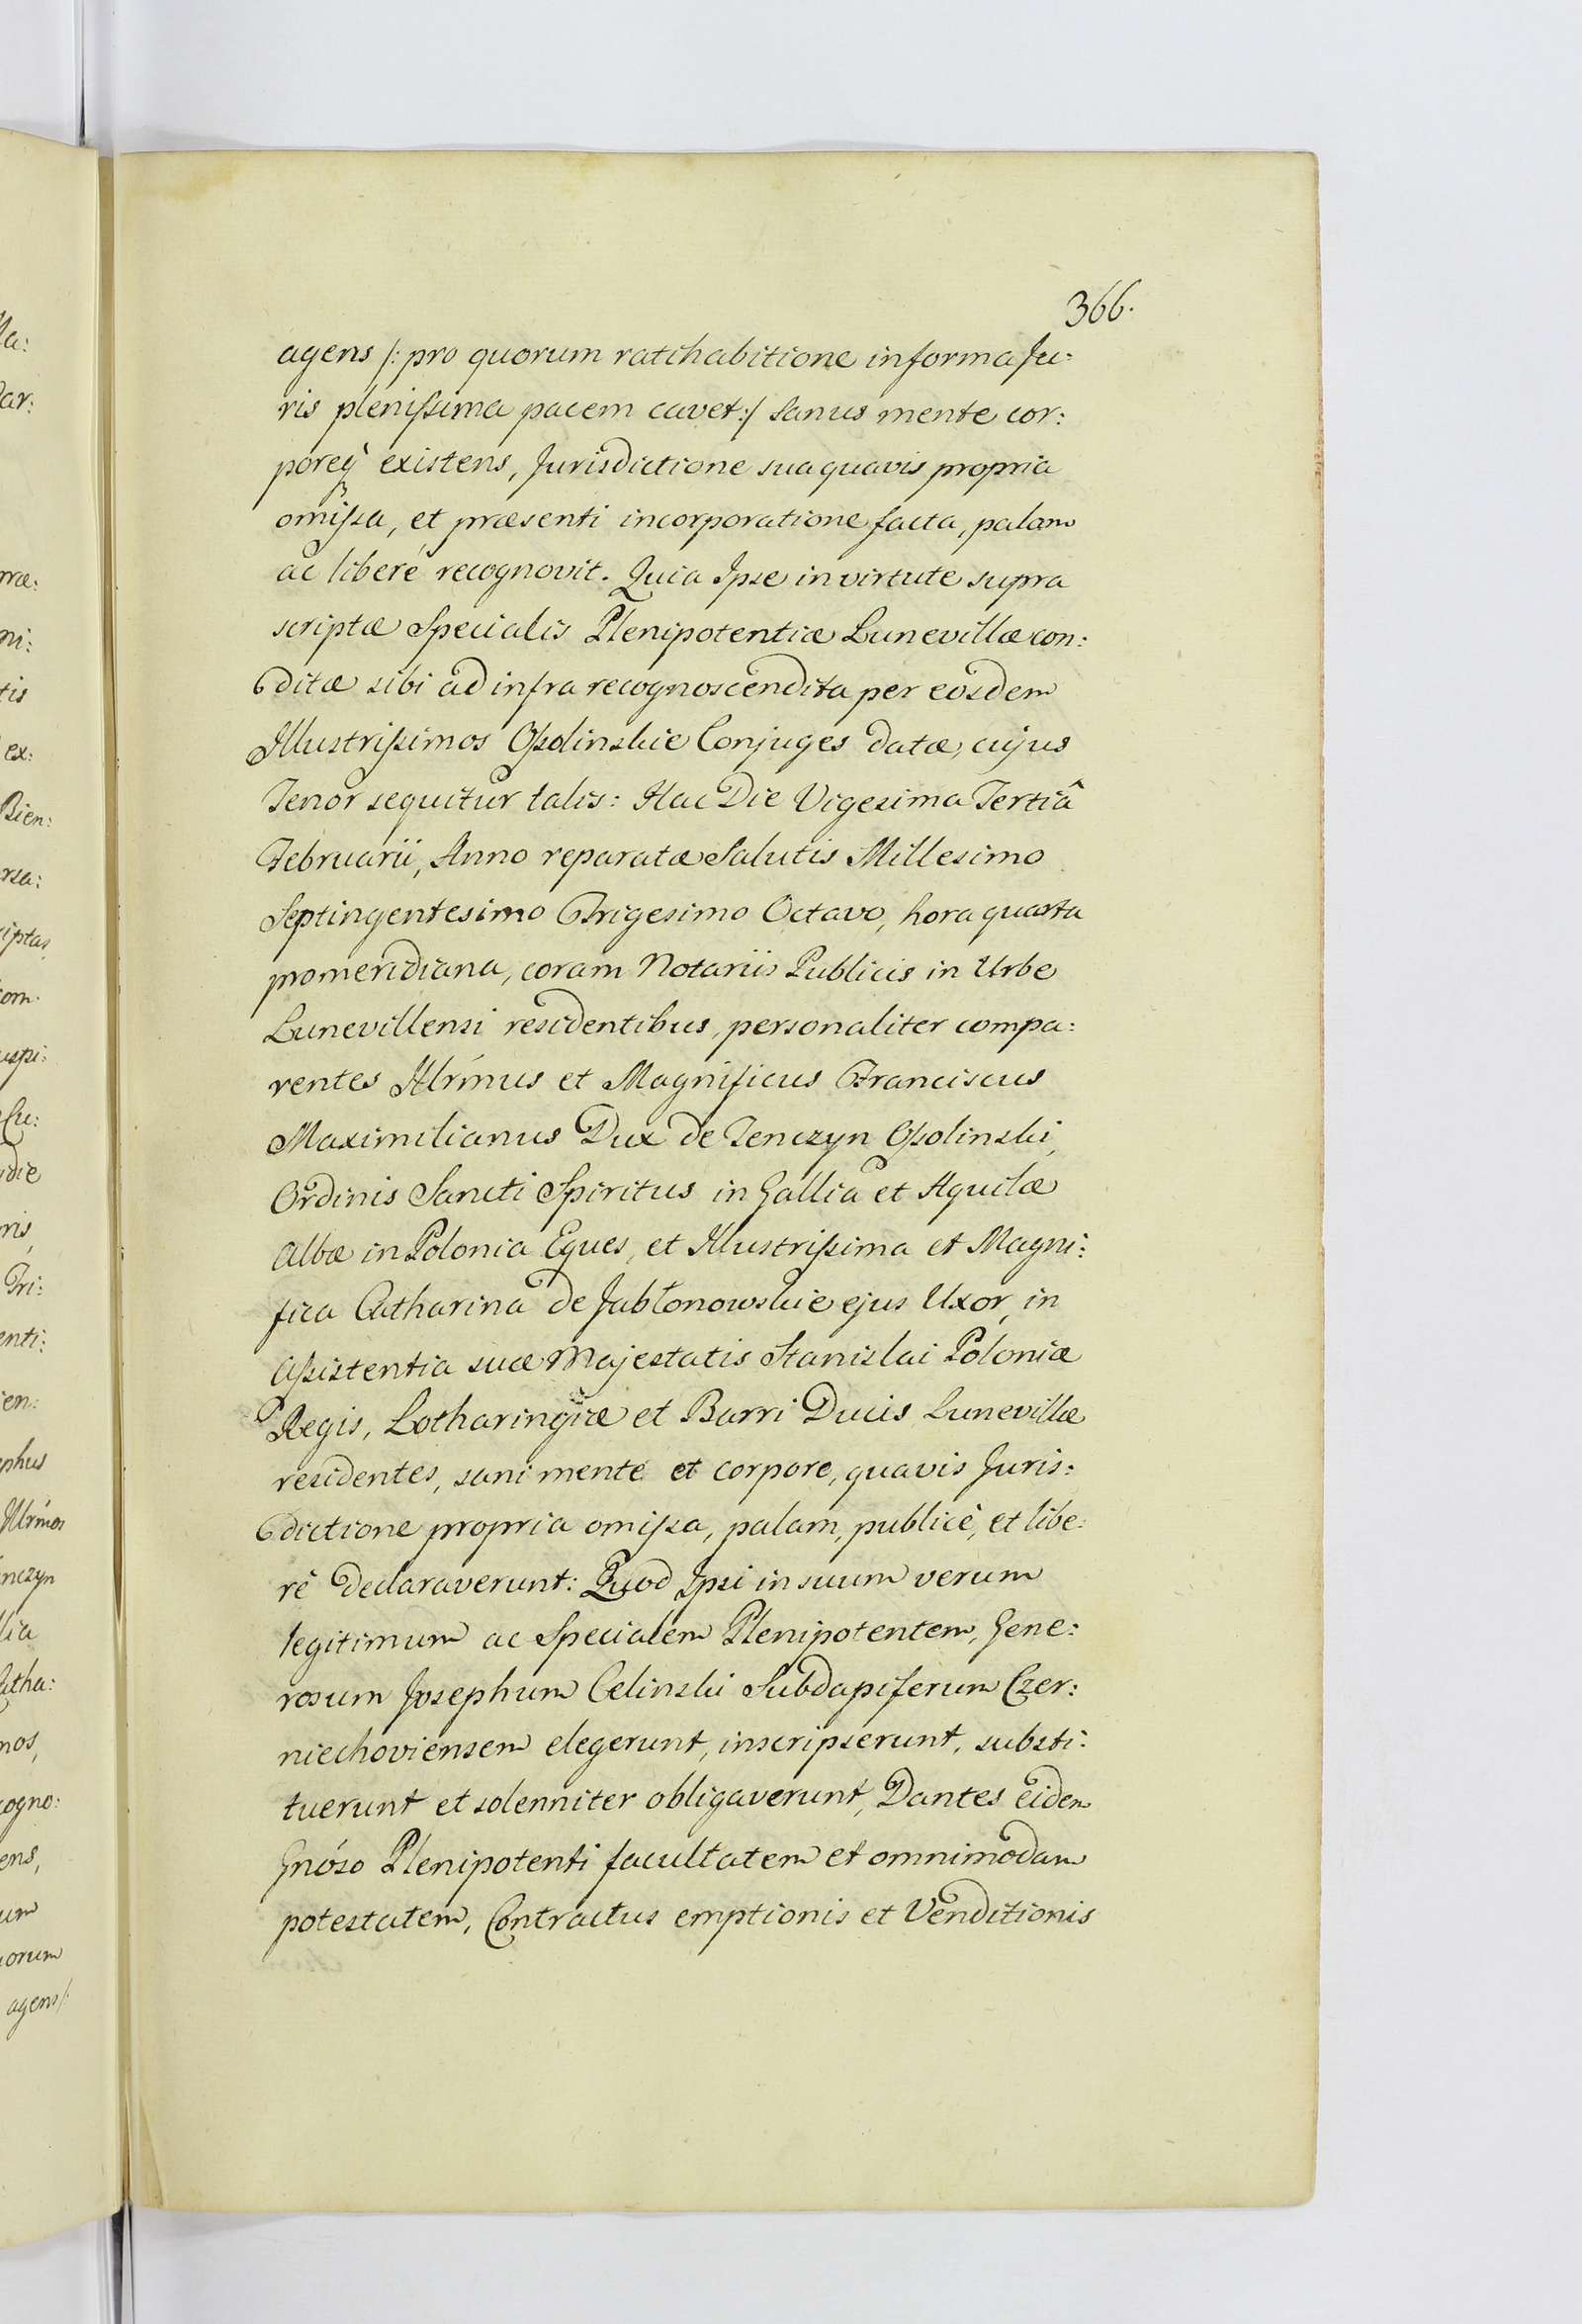 366.
agens /: pro quorum ratihabitione in forma Ju:
ris plenissima pacem cavet :/ Sanus mente cor:
poreq̀ existens, Jurisdictione sua quavis propria
omissa, et præsenti incorporatione facta, palam
ac liberé recognovit. Quia Ipse in virtute supra
scriptæ Specialis Plenipotentiæ Lunevillæ con:
ditæ sibi ad infra recognoscendita per eosdem
Illustrissimos Ossolinskie Conjuges datæ, cujus
Tenor sequitur talis: Hac Die Vigesima Tertiâ
Februarii, Anno reparatæ Salutis Millesimo
Septingentesimo Trigesimo Octavo, hora quarta
promeridiana, coram Notariis Publicis in Urbe
Lunevillensi residentibus, personaliter compa:
rentes Illrímus et Magnificus Franciscus
Maximilianus Dux de Tenczyn Ossolinski,
Ordinis Sancti Spiritus in Gallia et Aquilæ
albæ in Polonia Eques, et Illustrissima et Magni:
fica Catharina de Jabłonowskie ejus Uxor, in
Assistentia suæ Majestatis Stanislai Poloniæ
Regis, Lotharingiæ et Barri Ducis Lunevillæ
residentes, sani mente et corpore, quavis Juris:
dictione propria omissa, palam, publicè, et libe:
rè declaraverunt: Quod Ipsi in suum verum
legitimum ac Specialem Plenipotentem, Gene:
rosum Josephum Celinski Subdapiferum Czer:
niechoviensem elegerunt, inscripserunt, substi:
tuerunt et solenniter obligaverunt, Dantes eidem
Gnóso Plenipotenti facultatem et omnimodam
potestatem, Contractus emptionis et Venditionis